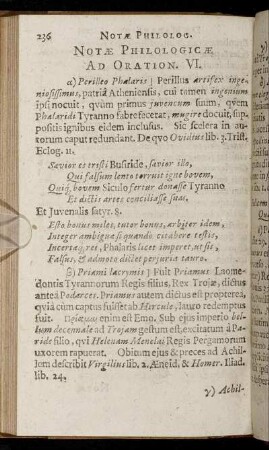 236 NOTÆ PHILOLOG.
NOTÆ PHILOLOGICÆ
AD ORATION. VI.
α) Perilleo Phalaris ) Perillus artifex inge-
niosissimus, patriâ Atheniensis, cui tamen ingenium
ipsi nocuit, qvùm primus juvencum suum, qvem
Phalaridi Tyranno fabrefecetat, mugire docuit, sup-
positis ignibus eidem inclusus. Sic scelera in au-
torum caput redundant. De qvo Ovidius lib. 3. Trist.
Eclog. 11.
Sævior et tristi Busiride, sævior illo,
Qui falsum lento torruit igne bovem,
Quiq́; bovem Siculo fertur donasse Tyranno
Et dictis artes conciliasse suas,
Et Juvenalis satyr. 8.
Esto bonus miles, tutor bonus, arbiter idem,
Integer ambiguæ, si quando citabere testis,
Incertæq́; rei, Phalaris licet imperet, ut sis,
Falsus, & admoto dictet perjuria tauro.
β) Priami lacrymis ) Fuit Priamus Laome-
dontis Tyrannorum Regis filius, Rex Trojæ, dictus
antea Podarces. Priamus autem dictus est propterea,
qvia cùm captus fuisset ab Hercule, auro redemptus
fuit. Πρίαμαι enim est Emo. Sub ejus imperio bel-
lum decennale ad Trojam gestum est, excitatum à Pa-
ride filio, qvi Helenam Menelai Regis Pergamorum
uxorem rapuerat. Obitum ejus & preces ad Achil-
lem describit Virgilius lib. 2. Æneid. & Homer. Iliad.
lib. 24.
γ) Achil-